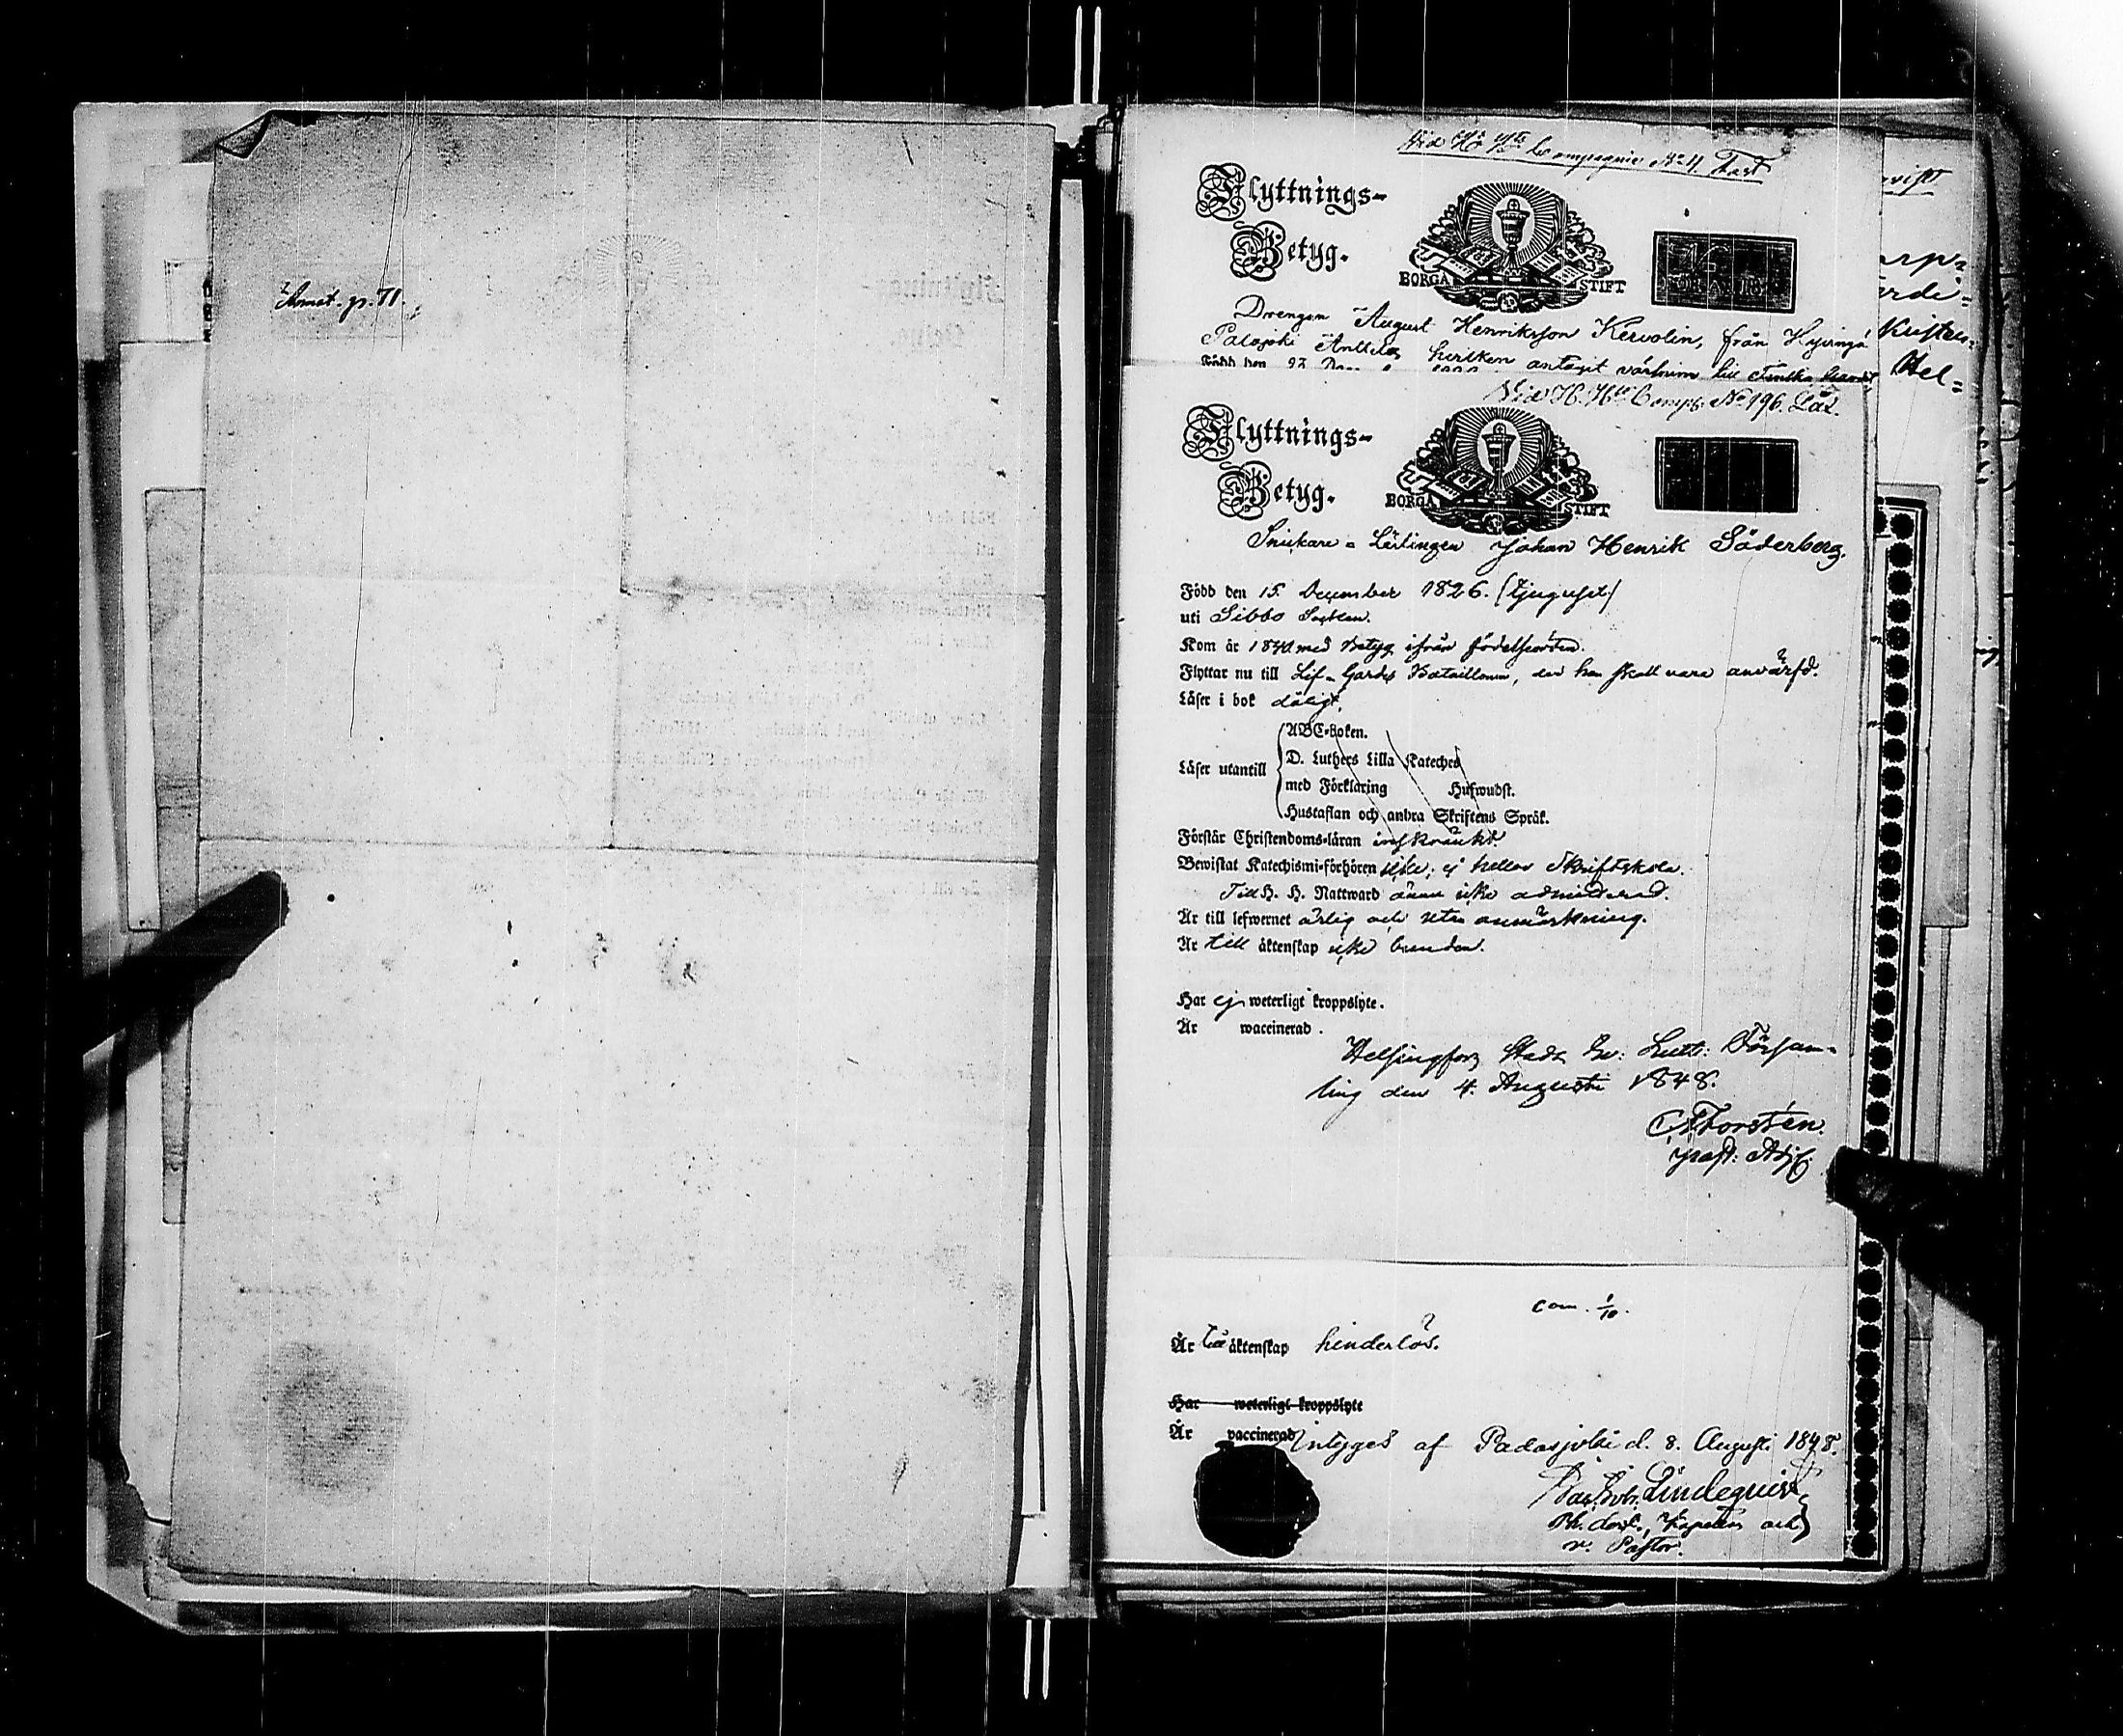 Annot. p. 71.
Vid H. Compagnie No 4.
Flyttnings-
Betyg.
BORGÅ STIFT
Drengen August Henriksson Kervolin, från Hyvingä
Palojoki Anttila, hvilken antagit värfning till Finska
Född den 23 Dec
Vid H. Comp. No 196. Läd.
Flyttnings-
Betyg.
BORGÅ STIFT
Snickare-Lärlingen Johan Henrik Söderberg.
Född den 15 December 1826. (tjugusex)
uti Sibbo Socken.
Kom år 1840 med Betyg ifrån födelseorten.
Flyttar nu till Lif-Gardes Bataillonen, der han skall vara anvärfd.
Läser i bok dåligt.
Läser utantill
ABC-Boken.
D. Luthers Lilla Kateches
med Förklaring Hufwudst.
Hustaflan och andra Skriftens Språk.
Förstår Christendoms-läran inskränkt.
Bewistat Katechismi-förhören icke, ej heller Skriftskola.
Till H. H. Nattward ännu icke admitterad.
Är till lefwernet ärlig och utan anmärkning.
Är till äktenskap icke bunden.
Har ej weterligt kroppslyte.
Är waccinerad.
Helsingfors Stads Ev: Luth: Försam-
ling den 4. Augusti 1848.
C Forstén.
past: Adj:
Com. 1/10.
Är till äktenskap hinderlös.
Har weterligt kroppslyte
Är vaccinerad Intygas af Padasjoki d. 8. Augusti 1848.
Lindequist
Kapellan och
v. Pastor.
arpa
ardi=
Kristen=
Hel=